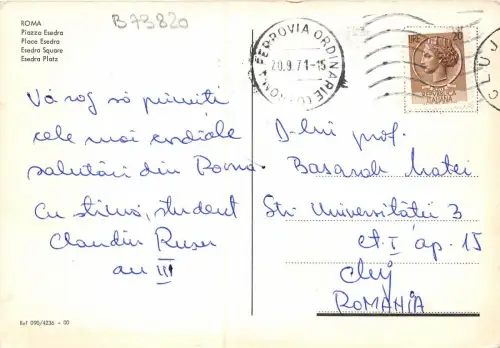 ROMA
Piazza Esedra
Place Esedra
Esedra Square
Esedra Platz
B73820
FERROVIA ORDINARIE
20.9.71-15
ROMA
LIRE 20
REPUBBLICA
ITALIANA
CLUJ
Vă rog să primiți
cele mai cordiale
salutări din Roma.
Cu stimă, student
Claudiu Rusu
an III
D-lui prof.
Basarab Matei
Str Universității 3
et. I ap. 15
Cluj
ROMANIA
Ref 090/4236 - 00